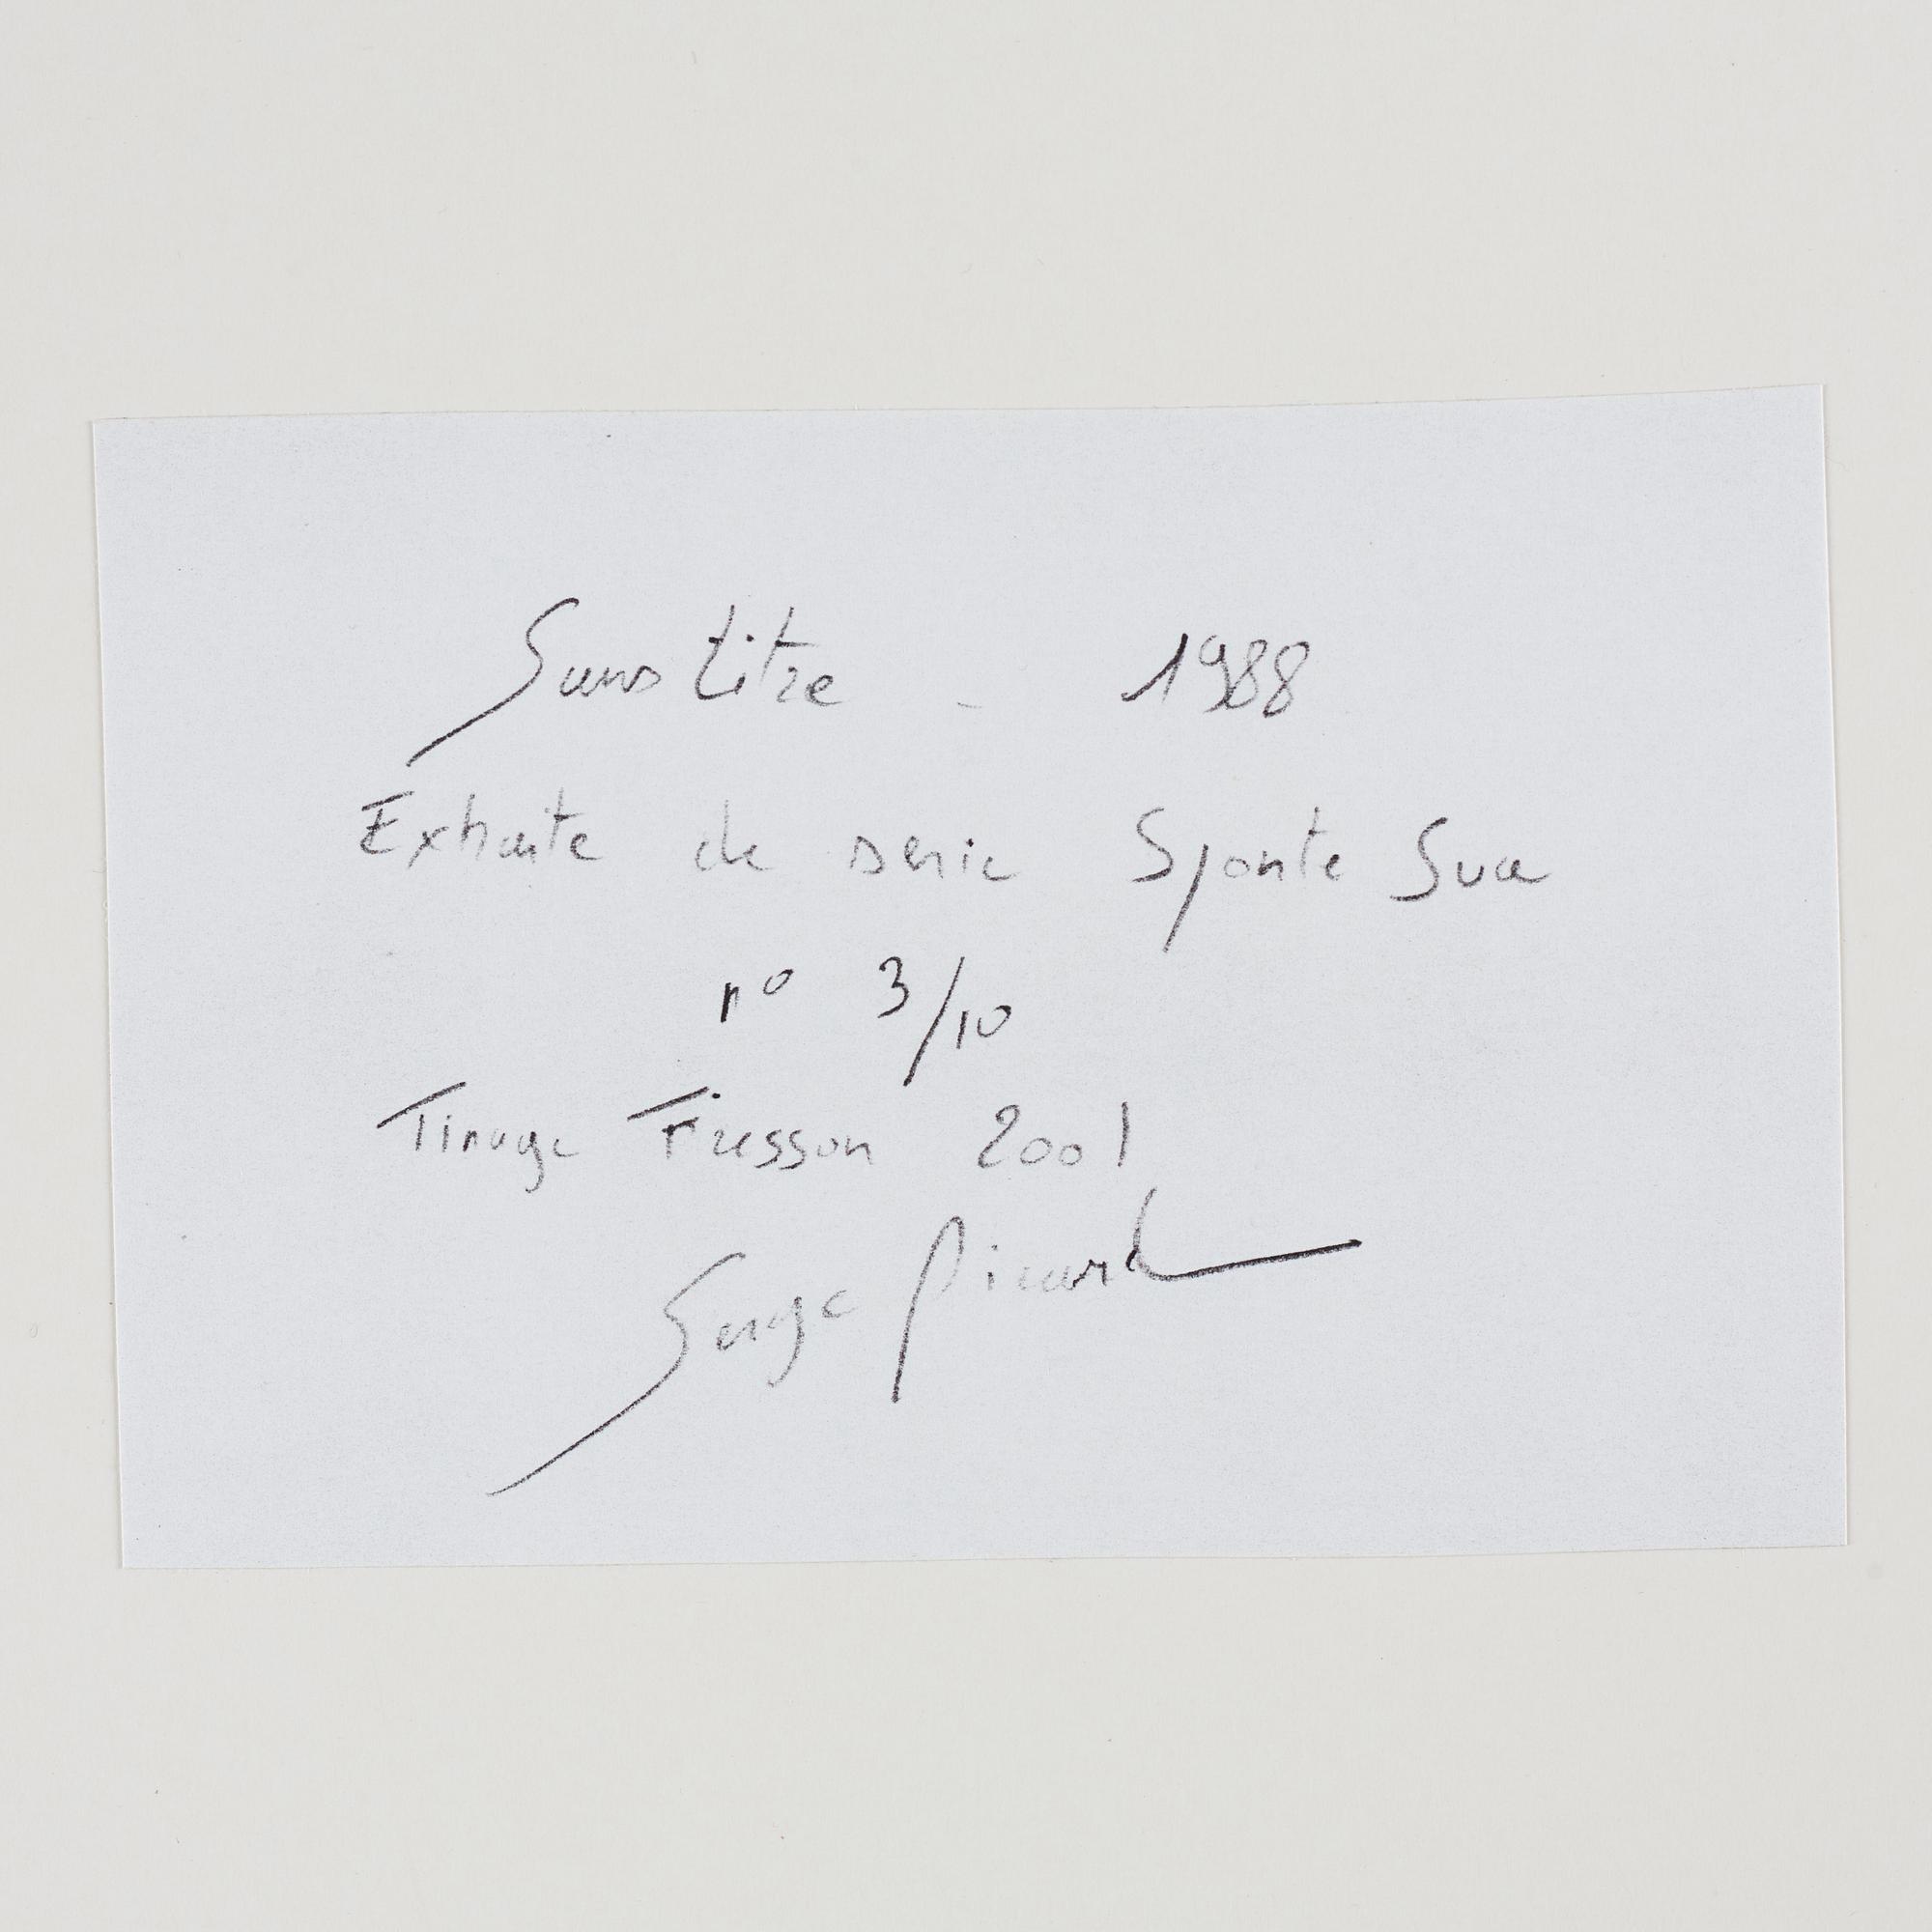 Sans titre - 1988
Extraite de serie Sponte Sua
n° 3/10
Tirage Fresson 2001
Serge Picard